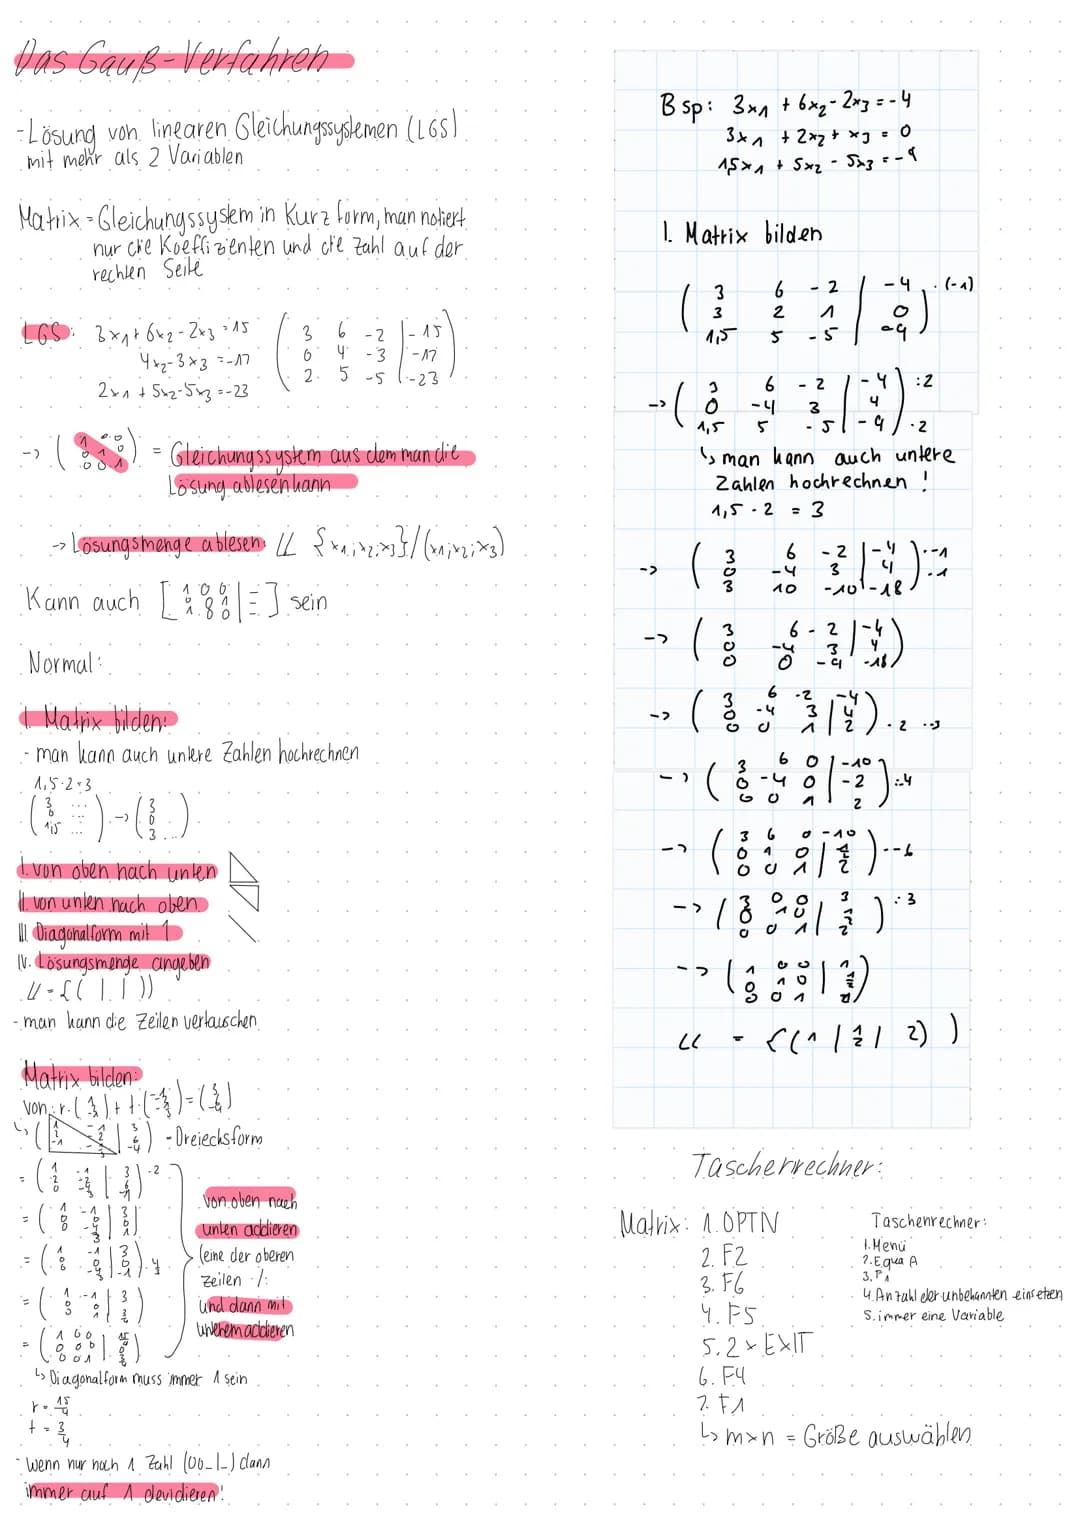 Das Gauß-Verfahren
- Lösung von linearen Gleichungssystemen (LGS)
mit mehr als 2 Variablen
Matrix = Gleichungssystem in Kurzform, man notiert
nur die Koeffizienten und die Zahl auf der
rechten Seite
LGS: 3x₁ + 6x₂ - 2x₃ = 15 ( 3 6 -2 | -15 )
4x₂ - 3x₃ = -17 ( 0 4 -3 | -17 )
2x₁ + 5x₂ - 5x₃ = -23 ( 2 5 -5 | -23 )
-> = Gleichungssystem aus dem man die
Lösung ablesen kann
-> Lösungsmenge ablesen: 𝕃 {x₁; x₂; x₃} / (x₁; x₂; x₃)
Kann auch sein
Normal:
1. Matrix bilden:
- man kann auch untere Zahlen hochrechnen
1,5·2=3
( 3 ... ) -> ( 3 )
( 0 ... ) ( 0 )
( 1,5 ... ) ( 3 ... )
I. von oben nach unten
II. von unten nach oben
III. Diagonalform mit 1
IV. Lösungsmenge angeben
𝕃 = {( | | )}
- man kann die Zeilen vertauschen
Matrix bilden:
von: r·
- Dreiecksform
von oben nach
unten addieren
(eine der oberen
Zeilen ·/:
und dann mit
unterem addieren
↳ Diagonalform muss immer 1 sein
r = 15/4
t = 3/4
- Wenn nur noch 1 Zahl (00_|_) dann
immer auf 1 devidieren!
Bsp: 3x₁ + 6x₂ - 2x₃ = -4
3x₁ + 2x₂ + x₃ = 0
1,5x₁ + 5x₂ - 5x₃ = -9
1. Matrix bilden
( 3 6 -2 | -4 ) ·(-1)
( 3 2 1 | 0 )
( 1,5 5 -5 | -9 )
-> ( 3 6 -2 | -4 ) :2
( 0 -4 3 | 4 )
( 1,5 5 -5 | -9 ) ·2
↳ man kann auch untere
Zahlen hochrechnen!
1,5 · 2 = 3
-> ( 3 6 -2 | -4 ) ·-1
( 0 -4 3 | 4 ) ·-1
( 3 10 -10 | -18 )
-> ( 3 6 -2 | -4 )
( 0 -4 3 | 4 )
( 0 0 -9 | -18 )
-> ( 3 6 -2 | -4 )
( 0 -4 3 | 4 )
( 0 0 1 | 2 ) ·2 ·-3
-> ( 3 6 0 | -10 )
( 0 -4 0 | -2 ) :-4
( 0 0 1 | 2 )
-> ( 3 6 0 | -10 )
( 0 1 0 | 1/2 ) ·-6
( 0 0 1 | 2 )
-> ( 3 0 0 | 3 ) :3
( 0 1 0 | 1/2 )
( 0 0 1 | 2 )
-> ( 1 0 0 | 1 )
( 0 1 0 | 1/2 )
( 0 0 1 | 2 )
𝕃 = {(1 | 1/2 | 2)}
Taschenrechner:
Matrix: 1. OPTN
2. F2
3. F6
4. F5
5. 2 x EXIT
6. F4
7. F1
↳ m×n = Größe auswählen
Taschenrechner:
1. Menü
2. Equa A
3. F1
4. Anzahl der unbekannten einsetzen
5. immer eine Variable